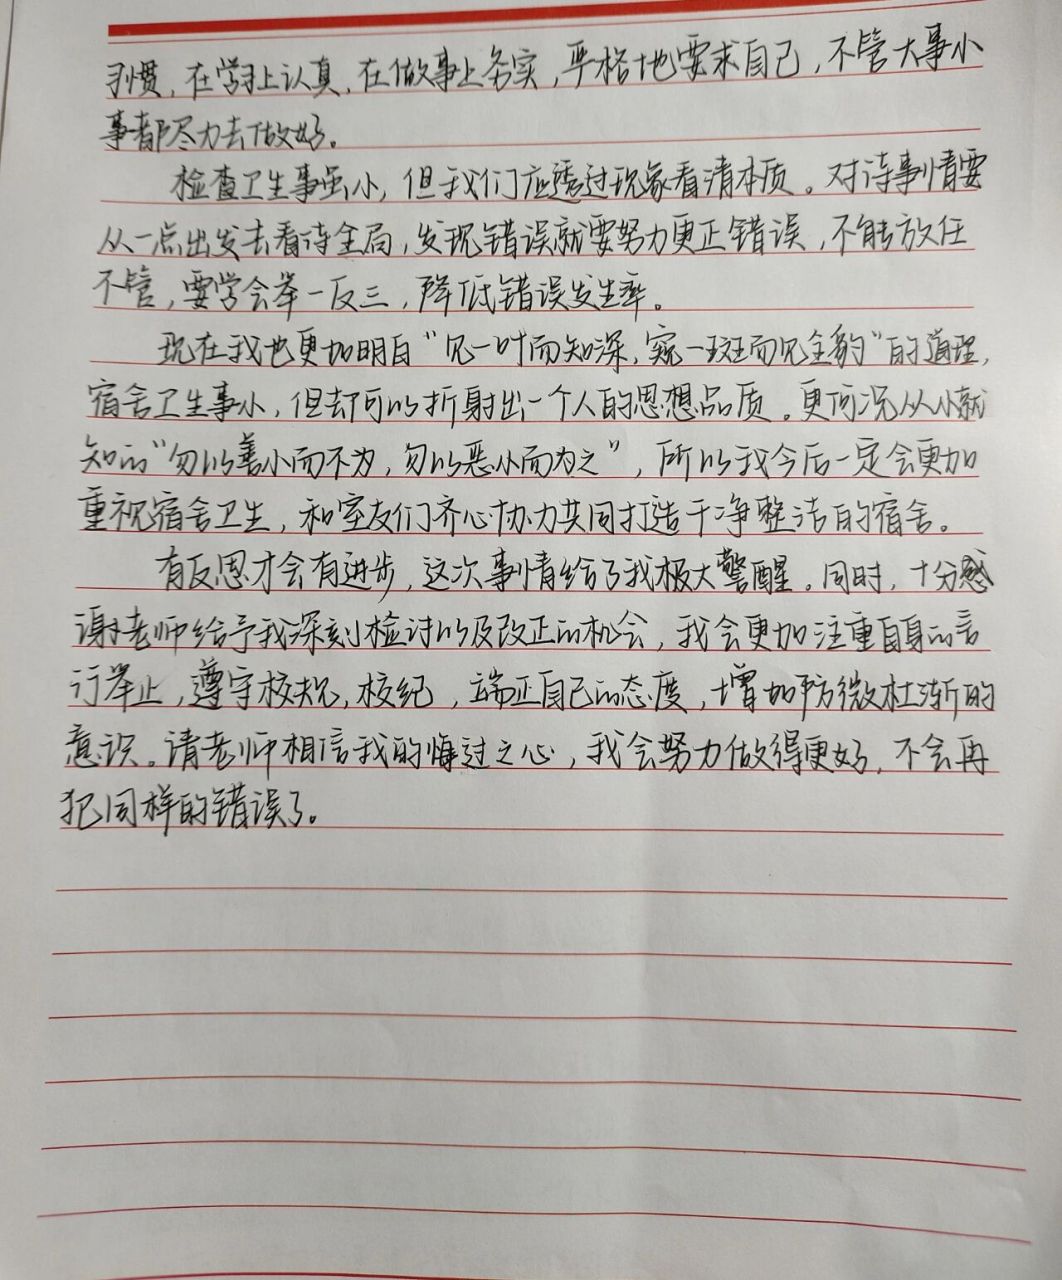 习惯，在学习上认真，在做事上务实，严格地要求自己，不管大事小
事都尽力去做好。
检查卫生事虽小，但我们应透过现象看清本质。对待事情要
从一点出发去看待全局，发现错误就要努力更正错误，不能放任
不管，要学会举一反三，降低错误发生率。
现在我也更加明白“见一叶而知深，窥一斑而见全豹”的道理，
宿舍卫生事小，但却可以折射出一个人的思想品质。更何况从小就
知的“勿以善小而不为，勿以恶小而为之”，所以我今后一定会更加
重视宿舍卫生，和室友们齐心协力共同打造干净整洁的宿舍。
有反思才会有进步，这次事情给了我极大警醒。同时，十分感
谢老师给予我深刻检讨以及改正的机会，我会更加注重自身的言
行举止，遵守校规，校纪，端正自己的态度，增加防微杜渐的
意识。请老师相信我的悔过之心，我会努力做得更好，不会再
犯同样的错误了。